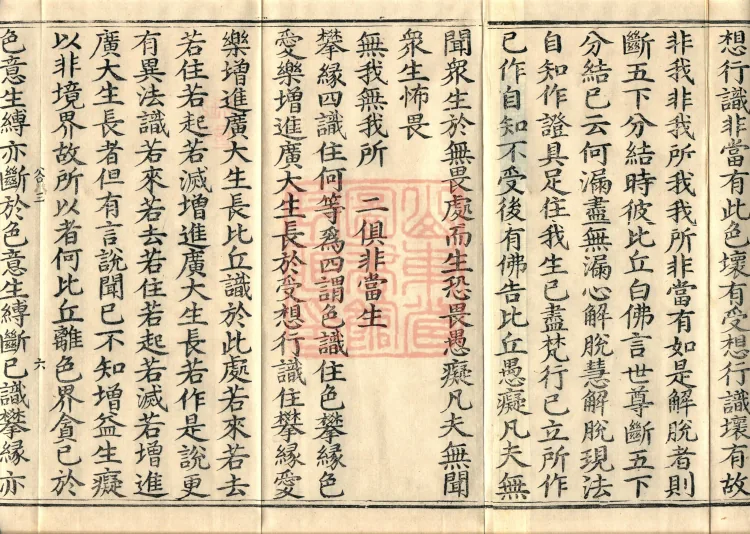 想行識非當有此色壞有受想行識壞有故
非我非我所我我所非當有如是解脫者則
斷五下分結時彼比丘白佛言世尊斷五下
分結已云何漏盡無漏心解脫慧解脫現法
自知作證具足住我生已盡梵行已立所作
已作自知不受後有佛告比丘愚癡凡夫無
聞眾生於無畏處而生恐畏愚癡凡夫無聞
眾生怖畏
無我無我所 二俱非當生
攀緣四識住何等爲四謂色識住色攀緣色
愛樂增進廣大生長於受想行識住攀緣愛
樂增進廣大生長比丘識於此處若來若去
若住若起若滅增進廣大生長若作是說更
有異法識若來若去若住若起若滅若增進
廣大生長者但有言說聞已不知增益生癡
以非境界故所以者何比丘離色界貪已於
六
色意生縛亦斷於色意生縛斷已識攀緣亦